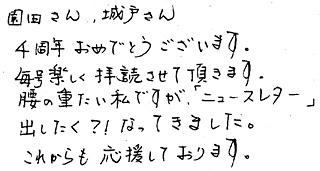 園田さん，城戸さん
4周年おめでとうございます.
毎号楽しく拝読させて頂きます.
腰の重たい私ですが,「ニュースレター」
出したく?!なってきました。
これからも応援しております。